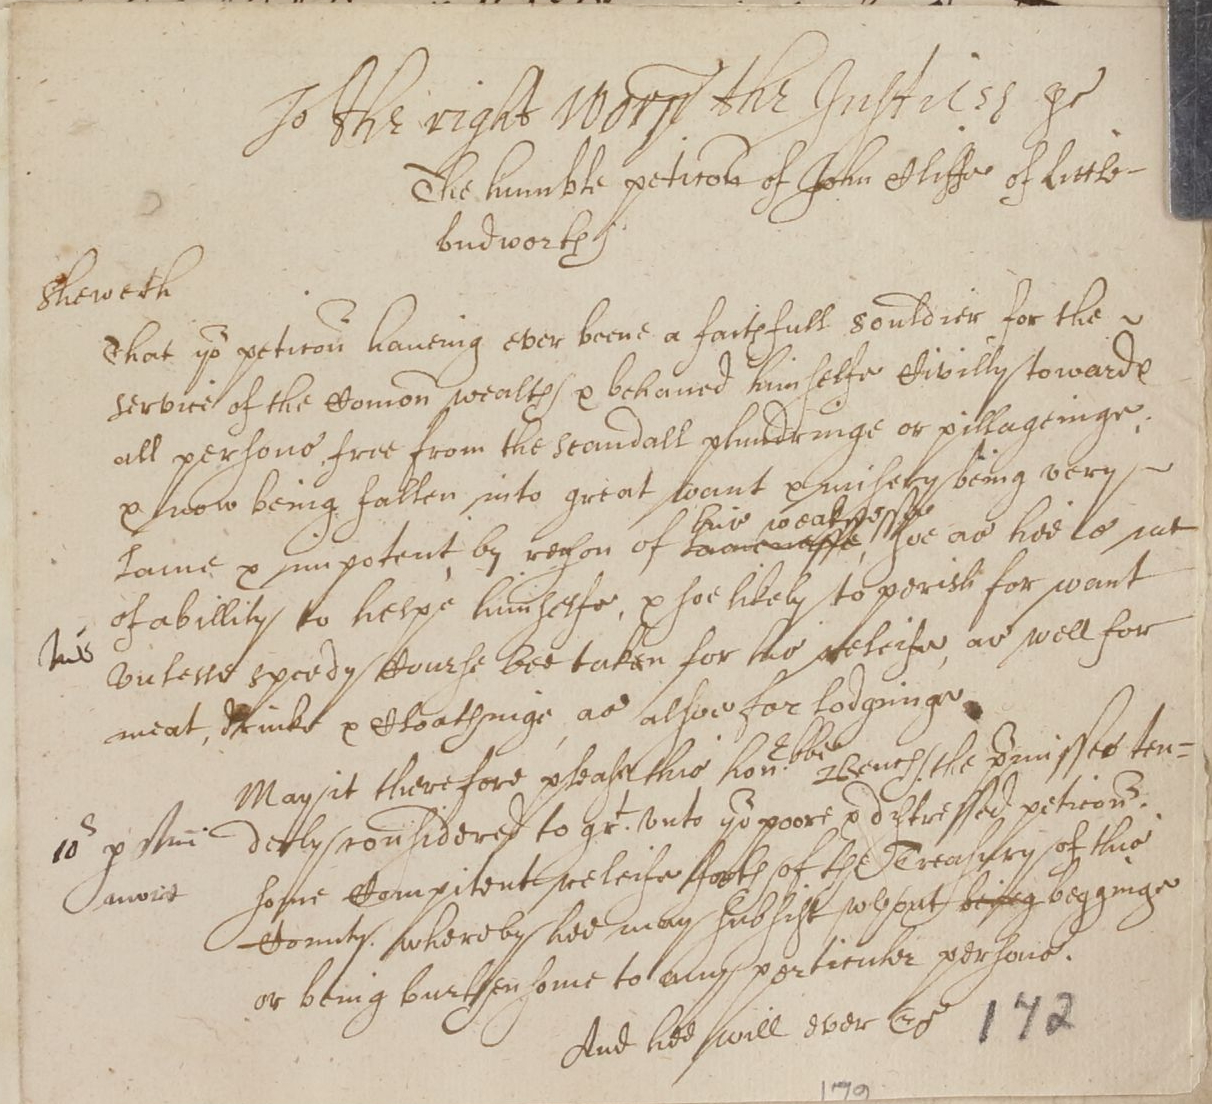 To the right Worpll the Justices &c
The humble peticon of John Cliffe of little
budworth
Sheweth
That yor peticonr haueing ever beene a faithfull souldier for the
service of the Comon wealth & behaued himselfe Civilly towards
all persons free from the scandall plundringe or pillageinge,
& now being fallen into great want & misery being very
his weaknesse
lame & impotent, by reason of lamenesse, soe as hee is not
of abillity to helpe himselfe, & soe likely to perish for want
vnlesse speedy Course bee taken for his releife, as well for
meat, drinke & Cloathinge, as alsoe for lodginge.
May it therefore please this honoble Bench, the pmisses ten=
derly considered to gt. vnto yor poore & distressed peticonr.
some Compitent releife forth of the Treasury of this
County. whereby hee may subsist wthout being begginge
or being burthensome to any perticuler persons.
And hee will ever &c
10s p Ann
172
179